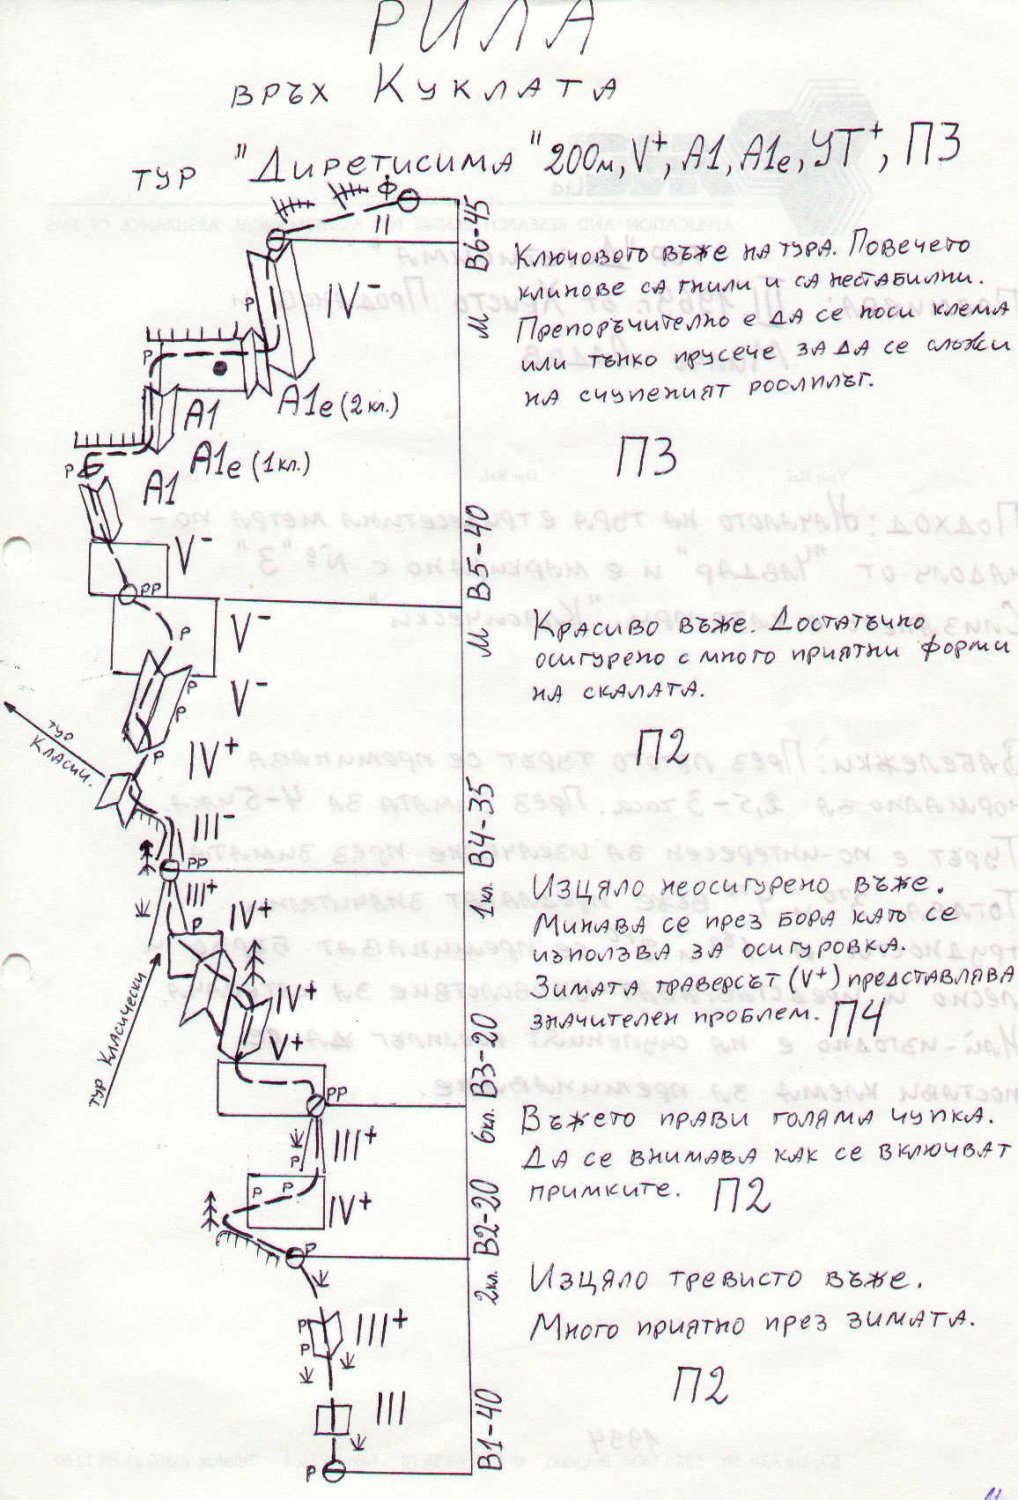 РИЛА
ВРЪХ КУКЛАТА
ТУР "ДИРЕТИСИМА" 200м, V+, А1, А1е, УТ+, П3
Ф
II
В6-45
М
IV-
Р
КЛЮЧОВОТО ВЪЖЕ НА ТУРА. ПОВЕЧЕТО
КЛИНОВЕ СА ГНИЛИ И СА НЕСТАБИЛНИ.
ПРЕПОРЪЧИТЕЛНО Е ДА СЕ НОСИ КЛЕМА
ИЛИ ТЪНКО ПРУСЕЧЕ ЗА ДА СЕ СЛОЖИ
НА СЧУПЕНИЯТ РООЛПЛЪГ.
П3
Р
А1е (2кл.)
А1
А1е (1кл.)
Р
А1
V-
В5-40
М
РР
V-
Р
V-
Р
Р
КРАСИВО ВЪЖЕ. ДОСТАТЪЧНО
ОСИГУРЕНО С МНОГО ПРИЯТНИ ФОРМИ
НА СКАЛАТА.
П2
ТУР
КЛАСИЧ.
Р
IV+
III-
В4-35
1кл.
РР
III+
IV+
Р
ИЗЦЯЛО НЕОСИГУРЕНО ВЪЖЕ.
МИНАВА СЕ ПРЕЗ БОРА КАТО СЕ
ИЗПОЛЗВА ЗА ОСИГУРОВКА.
ЗИМАТА ТРАВЕРСЪТ (V+) ПРЕДСТАВЛЯВА
ЗНАЧИТЕЛЕН ПРОБЛЕМ. П4
ТУР КЛАСИЧЕСКИ
IV+
V+
В3-20
6кл.
РР
III+
Р
ВЪЖЕТО ПРАВИ ГОЛЯМА ЧУПКА.
ДА СЕ ВНИМАВА КАК СЕ ВКЛЮЧВАТ
ПРИМКИТЕ. П2
Р Р
IV+
В2-20
2кл.
Р
ИЗЦЯЛО ТРЕВИСТО ВЪЖЕ.
МНОГО ПРИЯТНО ПРЕЗ ЗИМАТА.
П2
Р
Р
III+
III
В1-40
Р